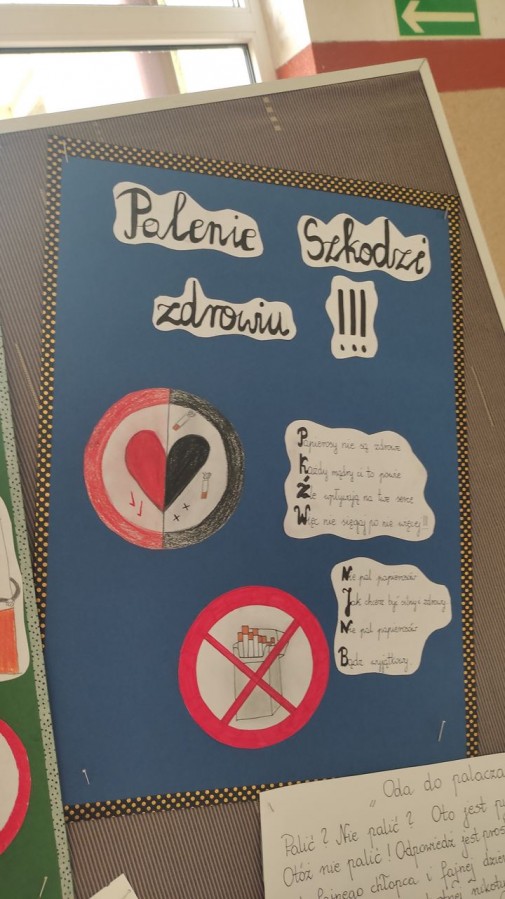 Palenie Szkodzi
zdrowiu !!!
Papierosy nie są zdrowe
Każdy mądry ci to powie
Źle wpływają na twe serce
Więc nie sięgaj po nie więcej!!!
Nie pal papierosów
Jak chcesz być silny i zdrowy
Nie pal papierosów
Bądź wyjątkowy.
"Oda do palacza
Palić? Nie palić? Oto jest
Otóż nie palić! Odpowiedź jest
fajnego chłopca i fajnej